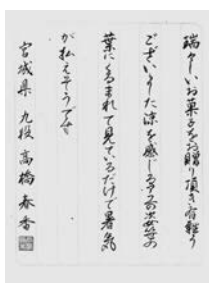 瑞々しいお菓子をお贈り頂き有難う
ございました涼を感じるお菓子の
葉に包まれて見ているだけで暑気
が払えそうです
宮城県 九段 高橋春香